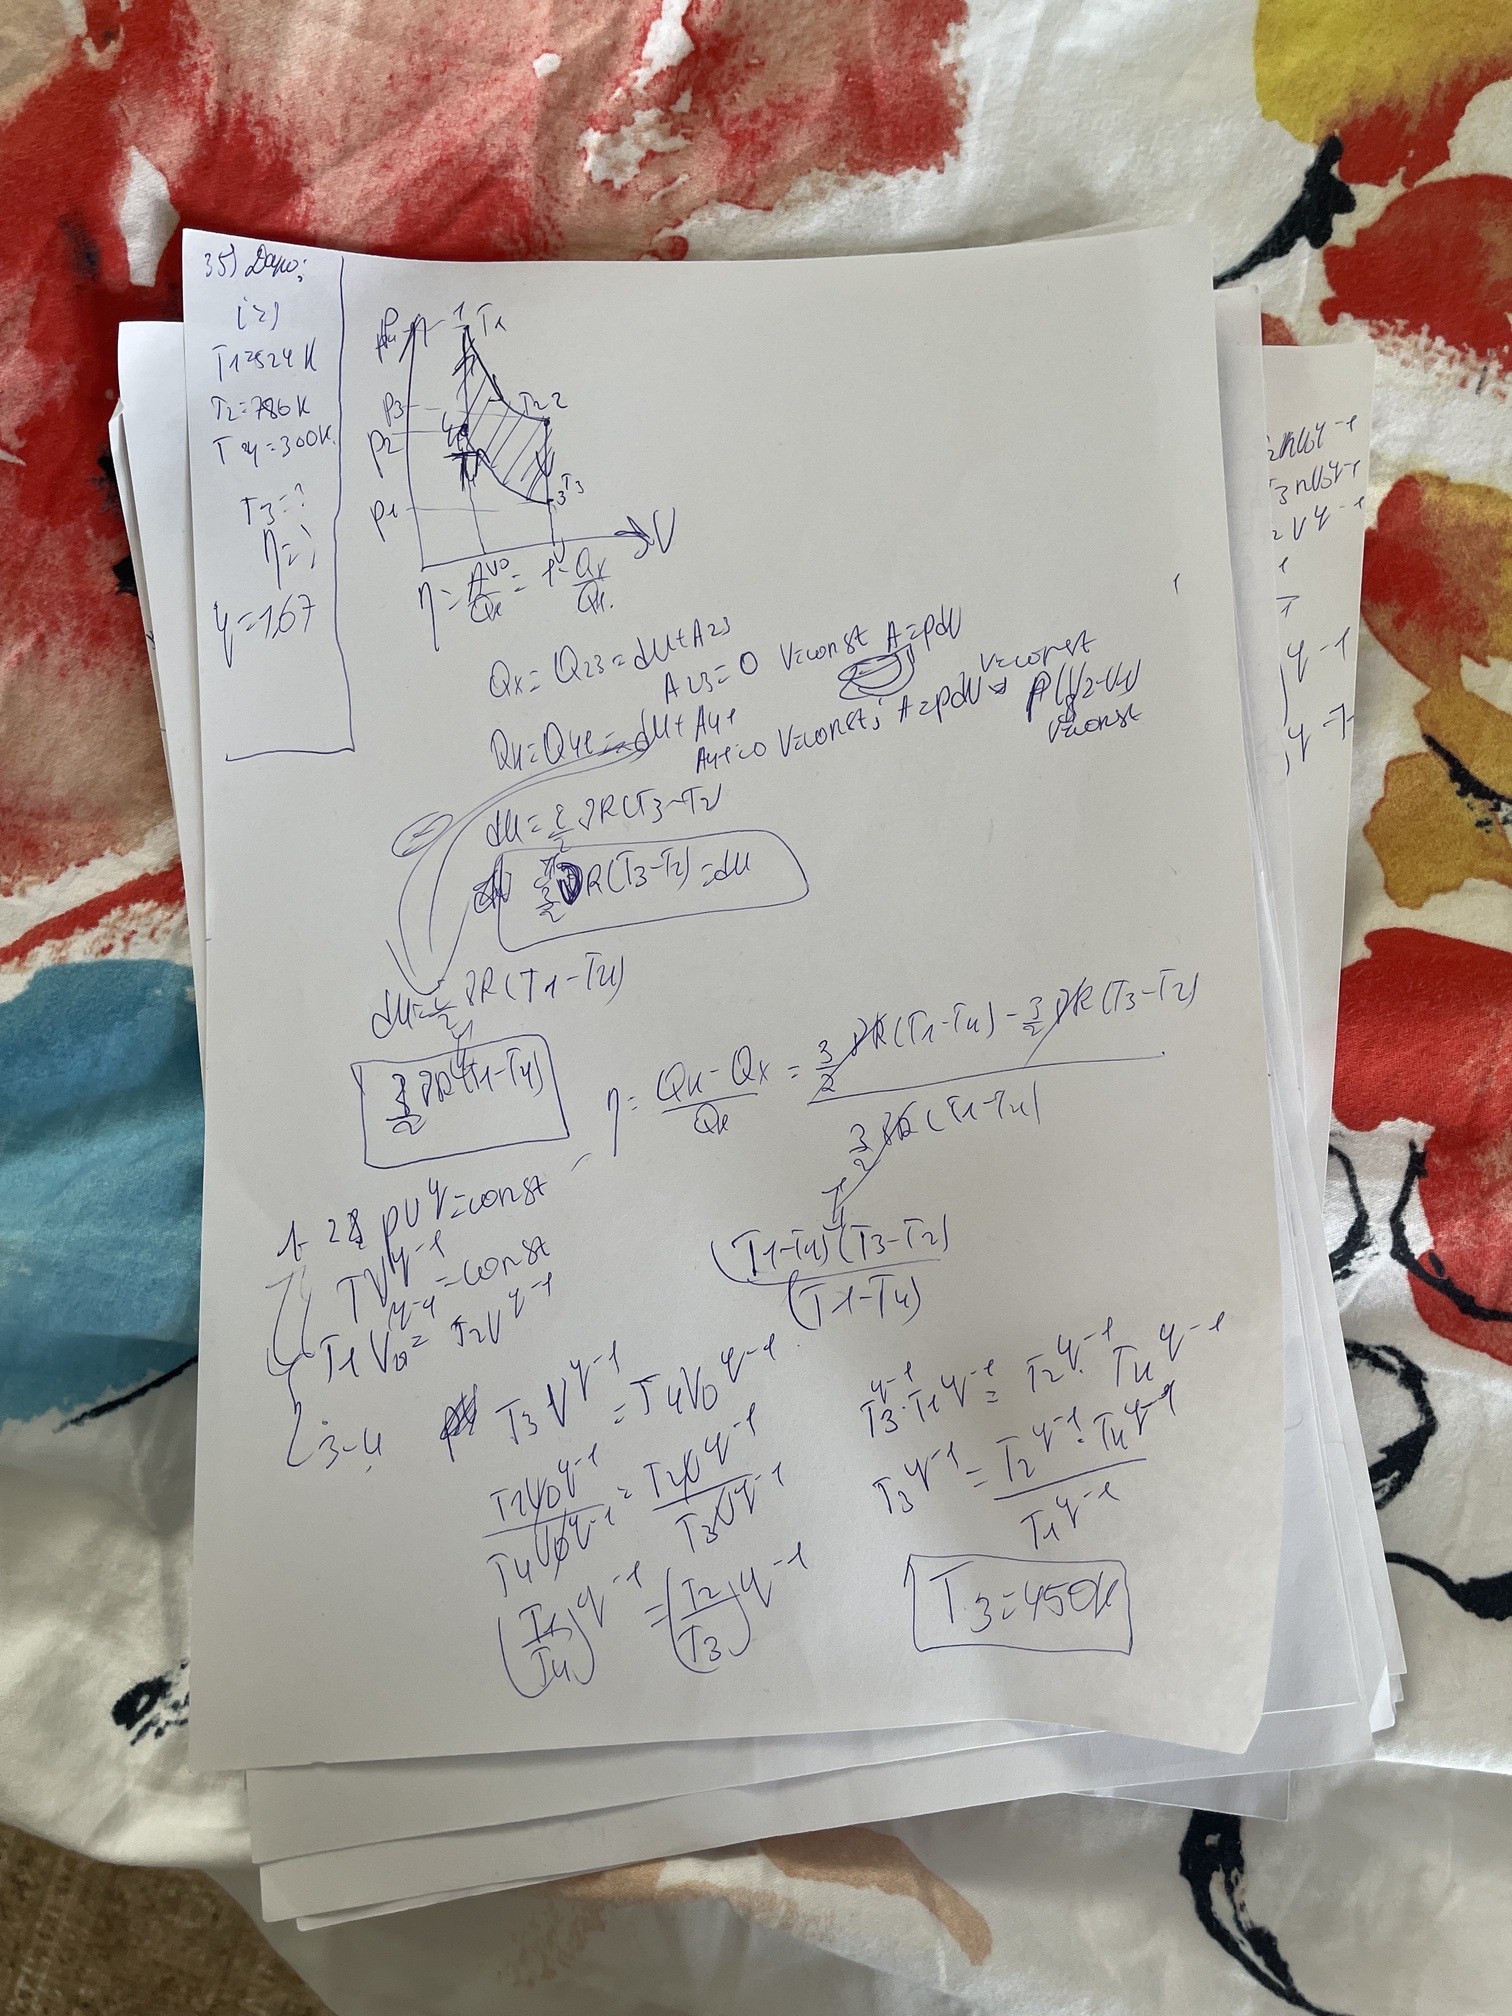 35) Дано:
T1=524 K
T2=786 K
T4=300K
T3=?
η=?
γ=1,67
1 T1
p3
T2 2
p2
4
p1
3 T3
V
η = A/Qн = 1 - Qx/Qн
Qx = Q23 = dU + A23
A23 = 0 V=const A=pdV
Qн = Q41 = dU + A41
A41=0 V=const; A=pdV
V=const
V=const
dU = i/2 νR(T3-T2)
3/2 νR(T3-T2) = dU
dU = i/2 νR(T1-T4)
3/2 νR(T1-T4)
η = (Qн - Qx)/Qн = (3/2 νR(T1-T4) - 3/2 νR(T3-T2)) / (3/2 νR(T1-T4))
1-2 pV^γ = const
TV^γ-1 = const
T1V0^γ-1 = T2V^γ-1
(T1-T4)(T3-T2) / (T1-T4)
3-4 T3V^γ-1 = T4V0^γ-1
T1V0^γ-1 / T4V0^γ-1 = T2V^γ-1 / T3V^γ-1
(T1/T4)^γ-1 = (T2/T3)^γ-1
T3^γ-1 · T1^γ-1 = T2^γ-1 · T4^γ-1
T3^γ-1 = T2^γ-1 · T4^γ-1 / T1^γ-1
T3=450K